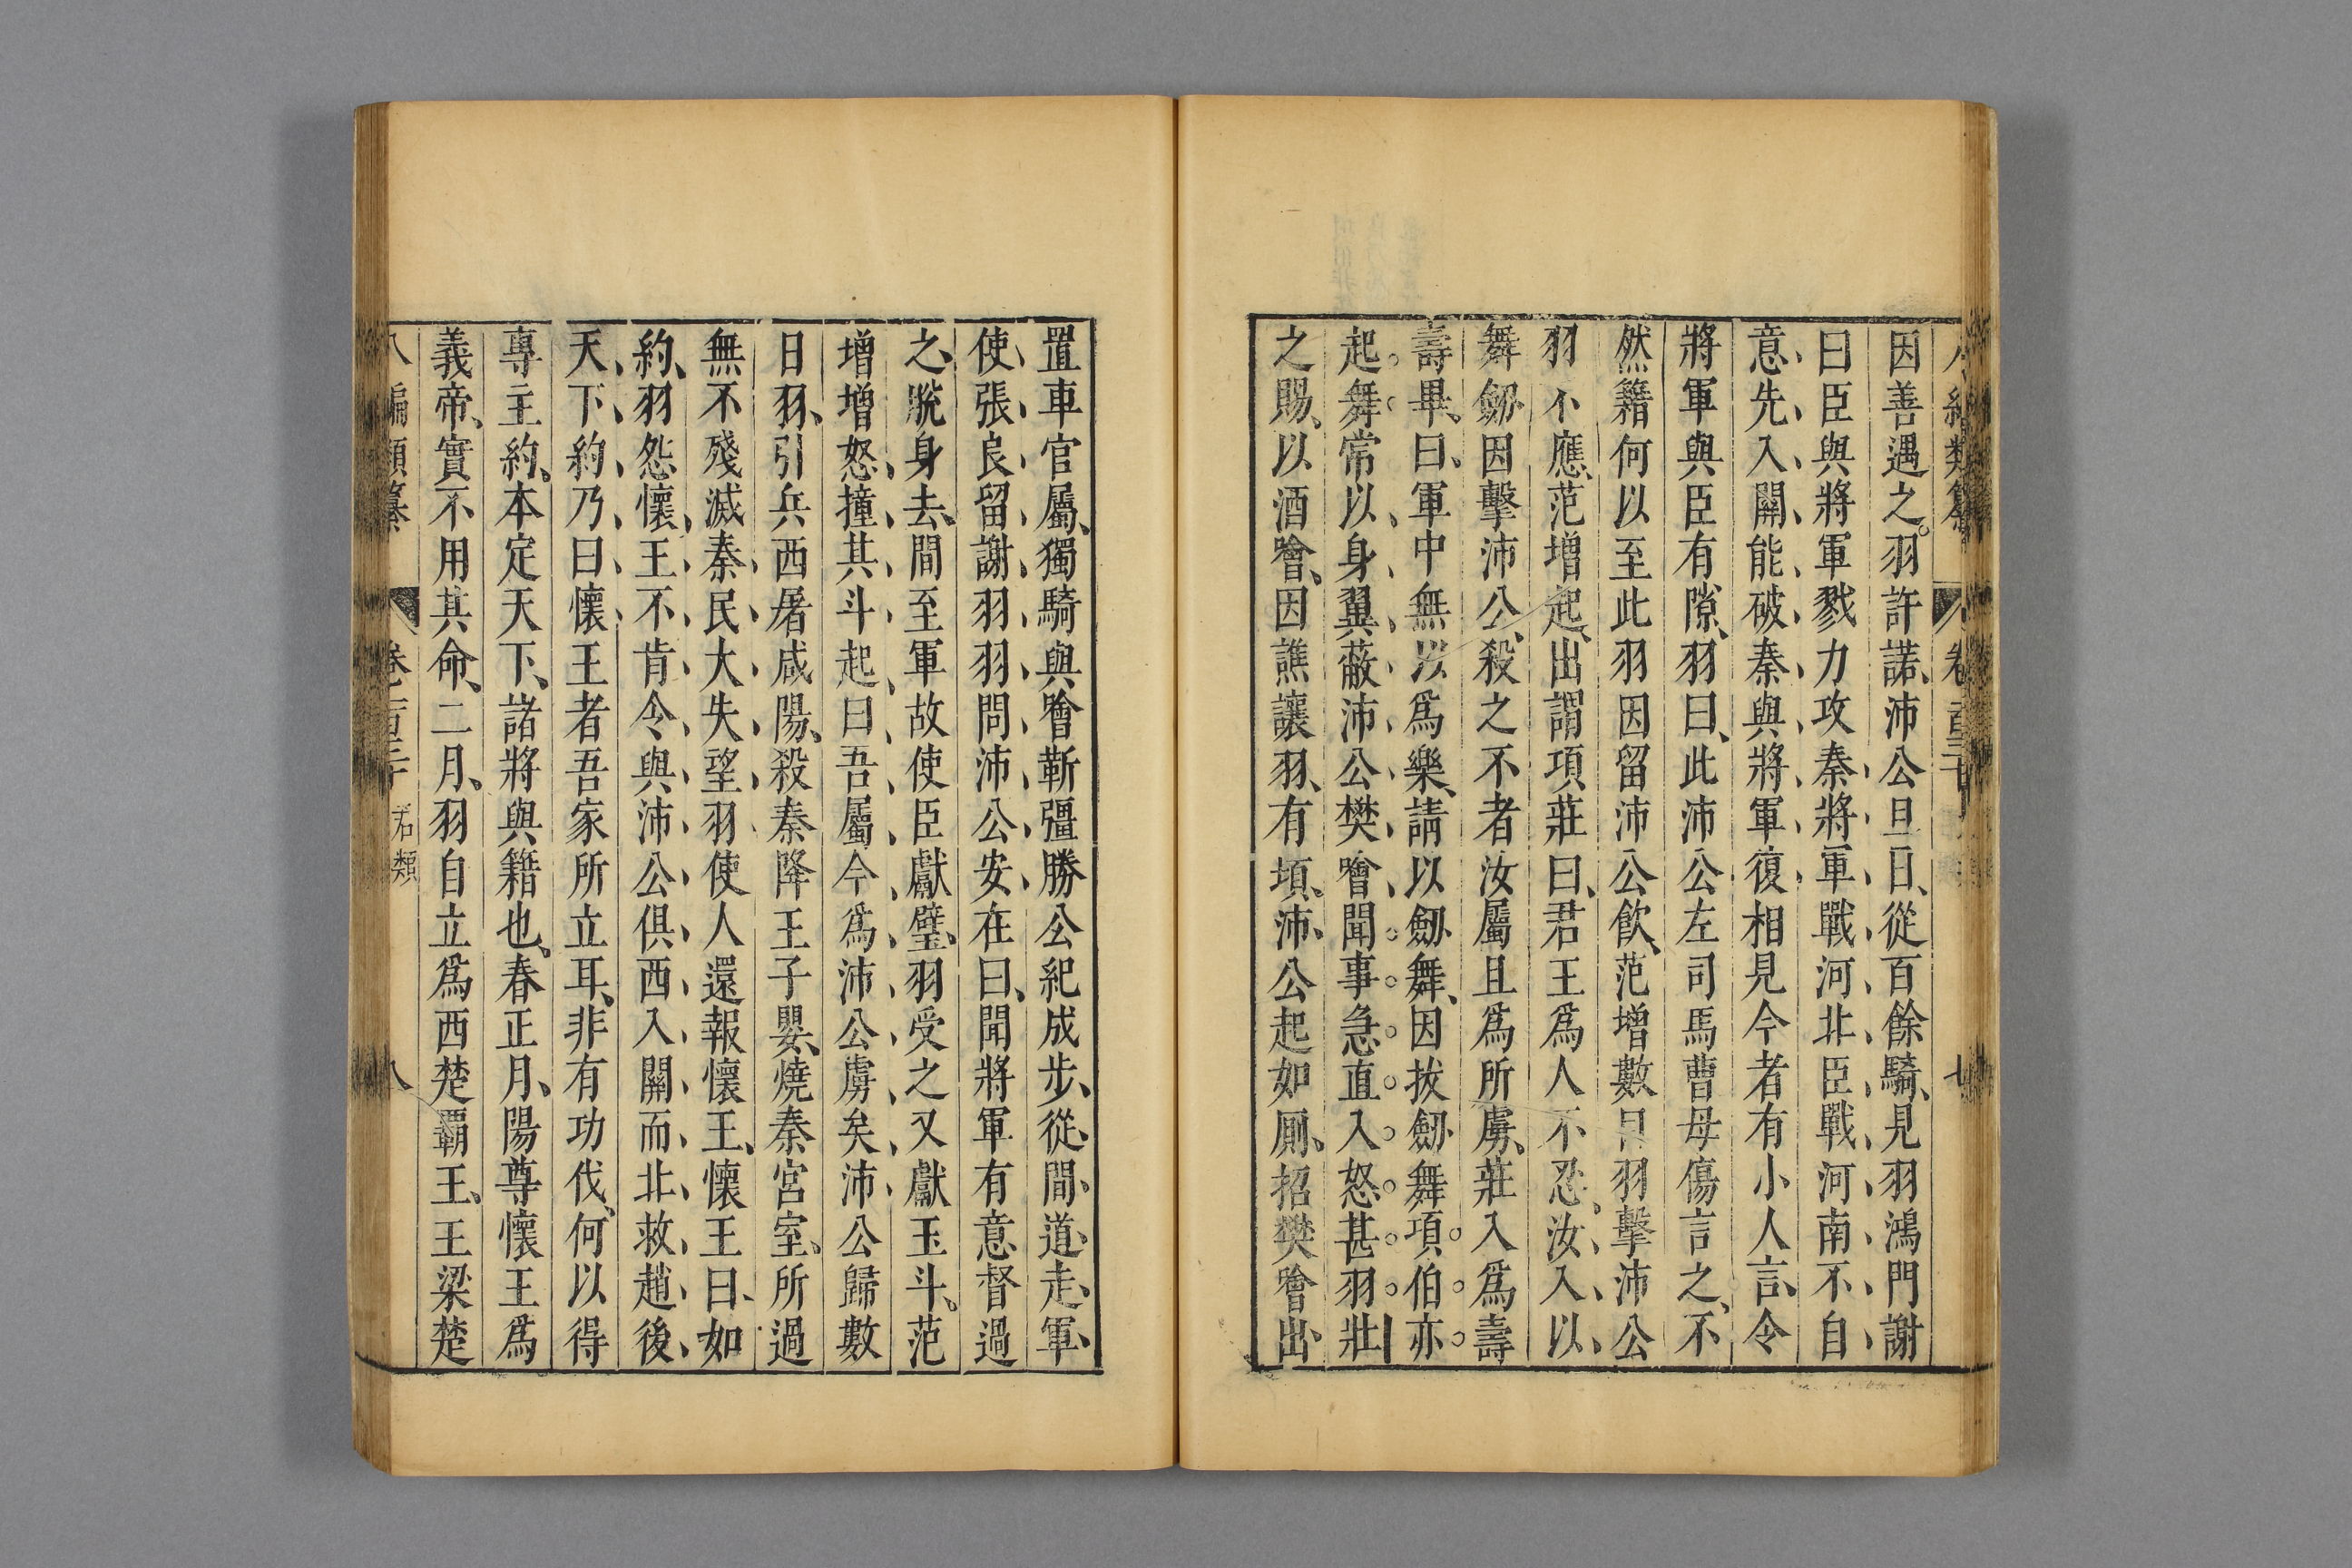 因善遇之。羽許諾、沛公旦日、從百餘騎、見羽鴻門謝
曰臣與將軍戮力攻秦、將、軍、戰、河、北、臣、戰、河、南、不、自、
意、先、入、關、能、破、秦、與、將、軍、復相見今者有小人言、令
將軍與臣有隙、羽曰、此沛公左司馬曹毋傷言之、不
然籍何以至此羽因留沛公飲、范增數目羽擊沛公
羽不應、范增起、出謂項莊曰、君王爲人不忍、汝、入、以、
舞劒因擊沛公、殺之不者汝屬且爲所虜、莊入爲壽
壽畢、曰、軍中無以爲樂、請以劒舞、因拔劒舞項。伯。亦。
起。舞。常以、身、翼、蔽、沛、公、樊、噲、聞。事。急。直。入。怒。甚。羽。壯
之賜、以酒噲、因譙讓羽、有頃、沛、公起如厠、招樊噲出、
置車官屬、獨騎與噲靳彊勝公紀成步、從、間、道、走、軍、
使、張、良、留、謝、羽、羽、問、沛、公、安、在、曰、聞將軍有意督過
之、脫身去、間至軍故使臣獻璧、羽受之又獻玉斗。范
增增怒、撞、其、斗、起、曰、吾、屬、今、爲、沛、公、虜、矣、沛、公歸數
日羽、引兵西屠咸陽、殺秦降王子嬰、燒秦宮室、所過
無不殘滅秦、民、大、失、望、羽、使人還報懷王、懷王曰、如
約、羽怨懷、王、不、肯、令、與、沛、公、俱、西、入、關、而、北、救、趙、後、
天、下、約、乃、曰、懷、王者吾家所立耳、非有功伐、何以得
專主約、本定天下、諸將與籍也、春正月、陽尊懷王爲
義帝、實不用其命、二月、羽自立爲西楚霸王、王梁楚
八編類纂 卷一百三十 君類 八